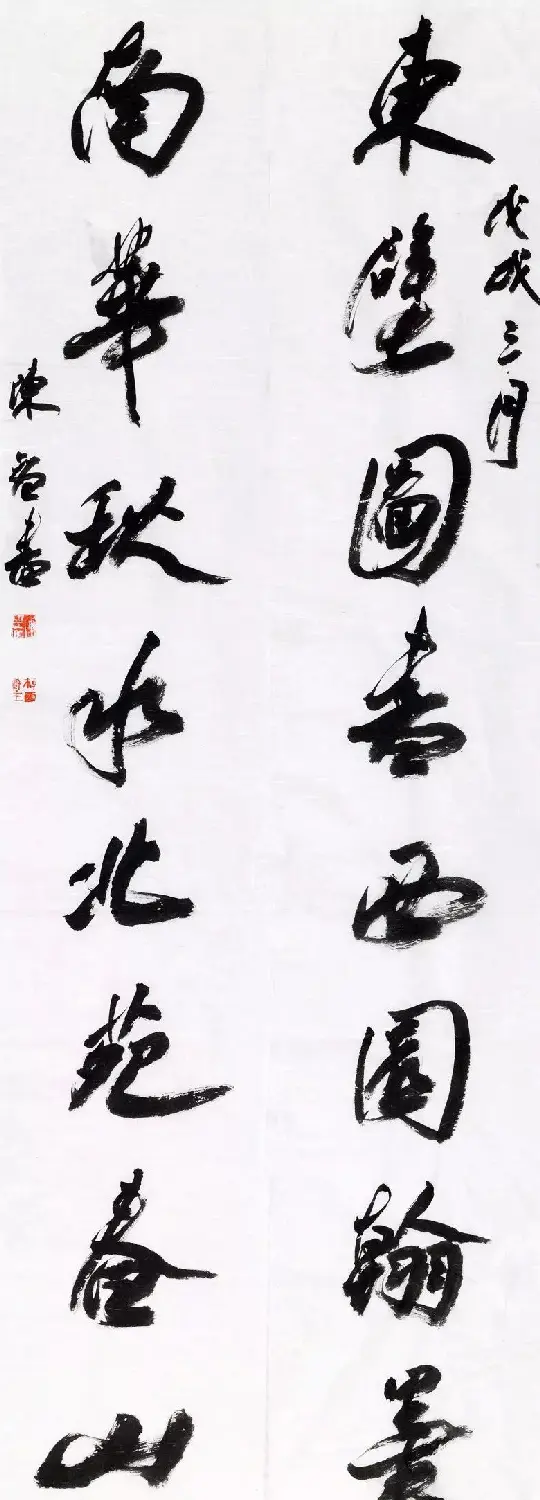 戊戌三月
東壁圖書西園翰墨
南華秋水北苑春山
陳智書